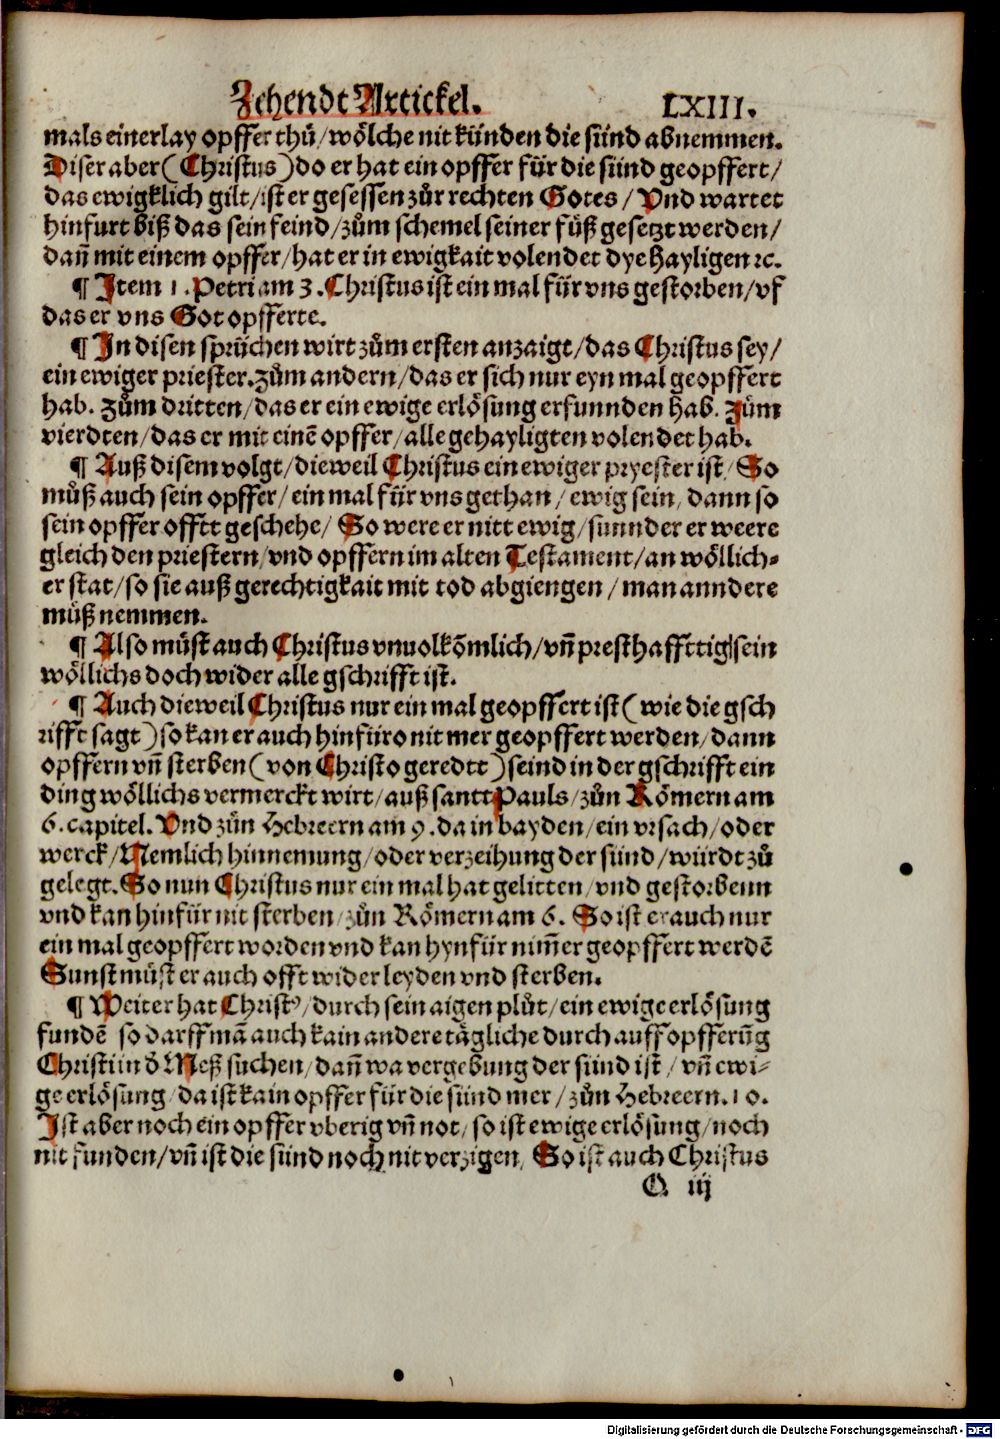 Zehendt Artickel. LXIII.
mals einerlay opffer thů/ wölche nit künden die sünd abnemmen.
Diser aber (Christus) do er hat ein opffer für die sünd geopffert/
das ewigklich gilt/ ist er gesessen zůr rechten Gotes/ Vnd wartet
hinfurt biß das sein feind/ zům schemel seiner füß gesetzt werden/
dañ mit einem opffer/ hat er in ewigkait volendet dye hayligen ꝛc.
¶ Item 1. Petri am 3. Christus ist ein mal für vns gestorben/ vf
das er vns Got opfferte.
¶ In disen sprüchen wirt zům ersten anzaigt/ das Christus sey/
ein ewiger priester. zům andern/ das er sich nur eyn mal geopffert
hab. zům dritten/ das er ein ewige erlösung erfunnden hab. Zům
vierdten/ das er mit einẽ opffer/ alle gehayligten volendet hab.
¶ Auß disem volgt/ dieweil Christus ein ewiger pryester ist/ So
můß auch sein opffer/ ein mal für vns gethan/ ewig sein/ dann so
sein opffer offtt geschehe/ So were er nitt ewig/ sunnder er weere
gleich den priestern/ vnd opffern im alten Testament/ an wöllich⸗
er stat/ so sie auß gerechtigkait mit tod abgiengen/ man anndere
můß nemmen.
¶ Also můst auch Christus vnuolkõmlich/ vñ presthaffttig sein
wöllichs doch wider alle gschrifft ist.
¶ Auch dieweil Christus nur ein mal geopffert ist (wie die gsch
rifft sagt) so kan er auch hinfüro nit mer geopffert werden/ dann
opffern vñ sterben (von Christo geredtt) seind in der gschrifft ein
ding wöllichs vermerckt wirt/ auß santt Pauls/ zůn Römern am
6. capitel. Vnd zůn Hebreern am 9. da in bayden/ ein vrsach/ oder
werck/ Nemlich hinnemung/ oder verzeihung der sünd/ würdt zů
gelegt. So nun Christus nur ein mal hat gelitten/ vnd gestorbenn
vnd kan hinfür nit sterben/ zůn Römern am 6. So ist er auch nur
ein mal geopffert worden vnd kan hynfür nim̃er geopffert werdẽ
Sunst můst er auch offt wider leyden vnd sterben.
¶ Weiter hat Christꝰ/ durch sein aigen plůt/ ein ewige erlösung
fundẽ so darff mã auch kain andere tägliche durch auffopfferũg
Christi in d̓ Meß suchen/ dañ wa vergebung der sünd ist/ vñ ewi⸗
ge erlösung/ da ist kain opffer für die sünd mer/ zůn Hebreern. 10.
Ist aber noch ein opffer vberig vñ not/ so ist ewige erlösung/ noch
nit funden/ vñ ist die sünd noch nit verzigen/ So ist auch Christus
O iij
Digitalisierung gefördert durch die Deutsche Forschungsgemeinschaft - DFG